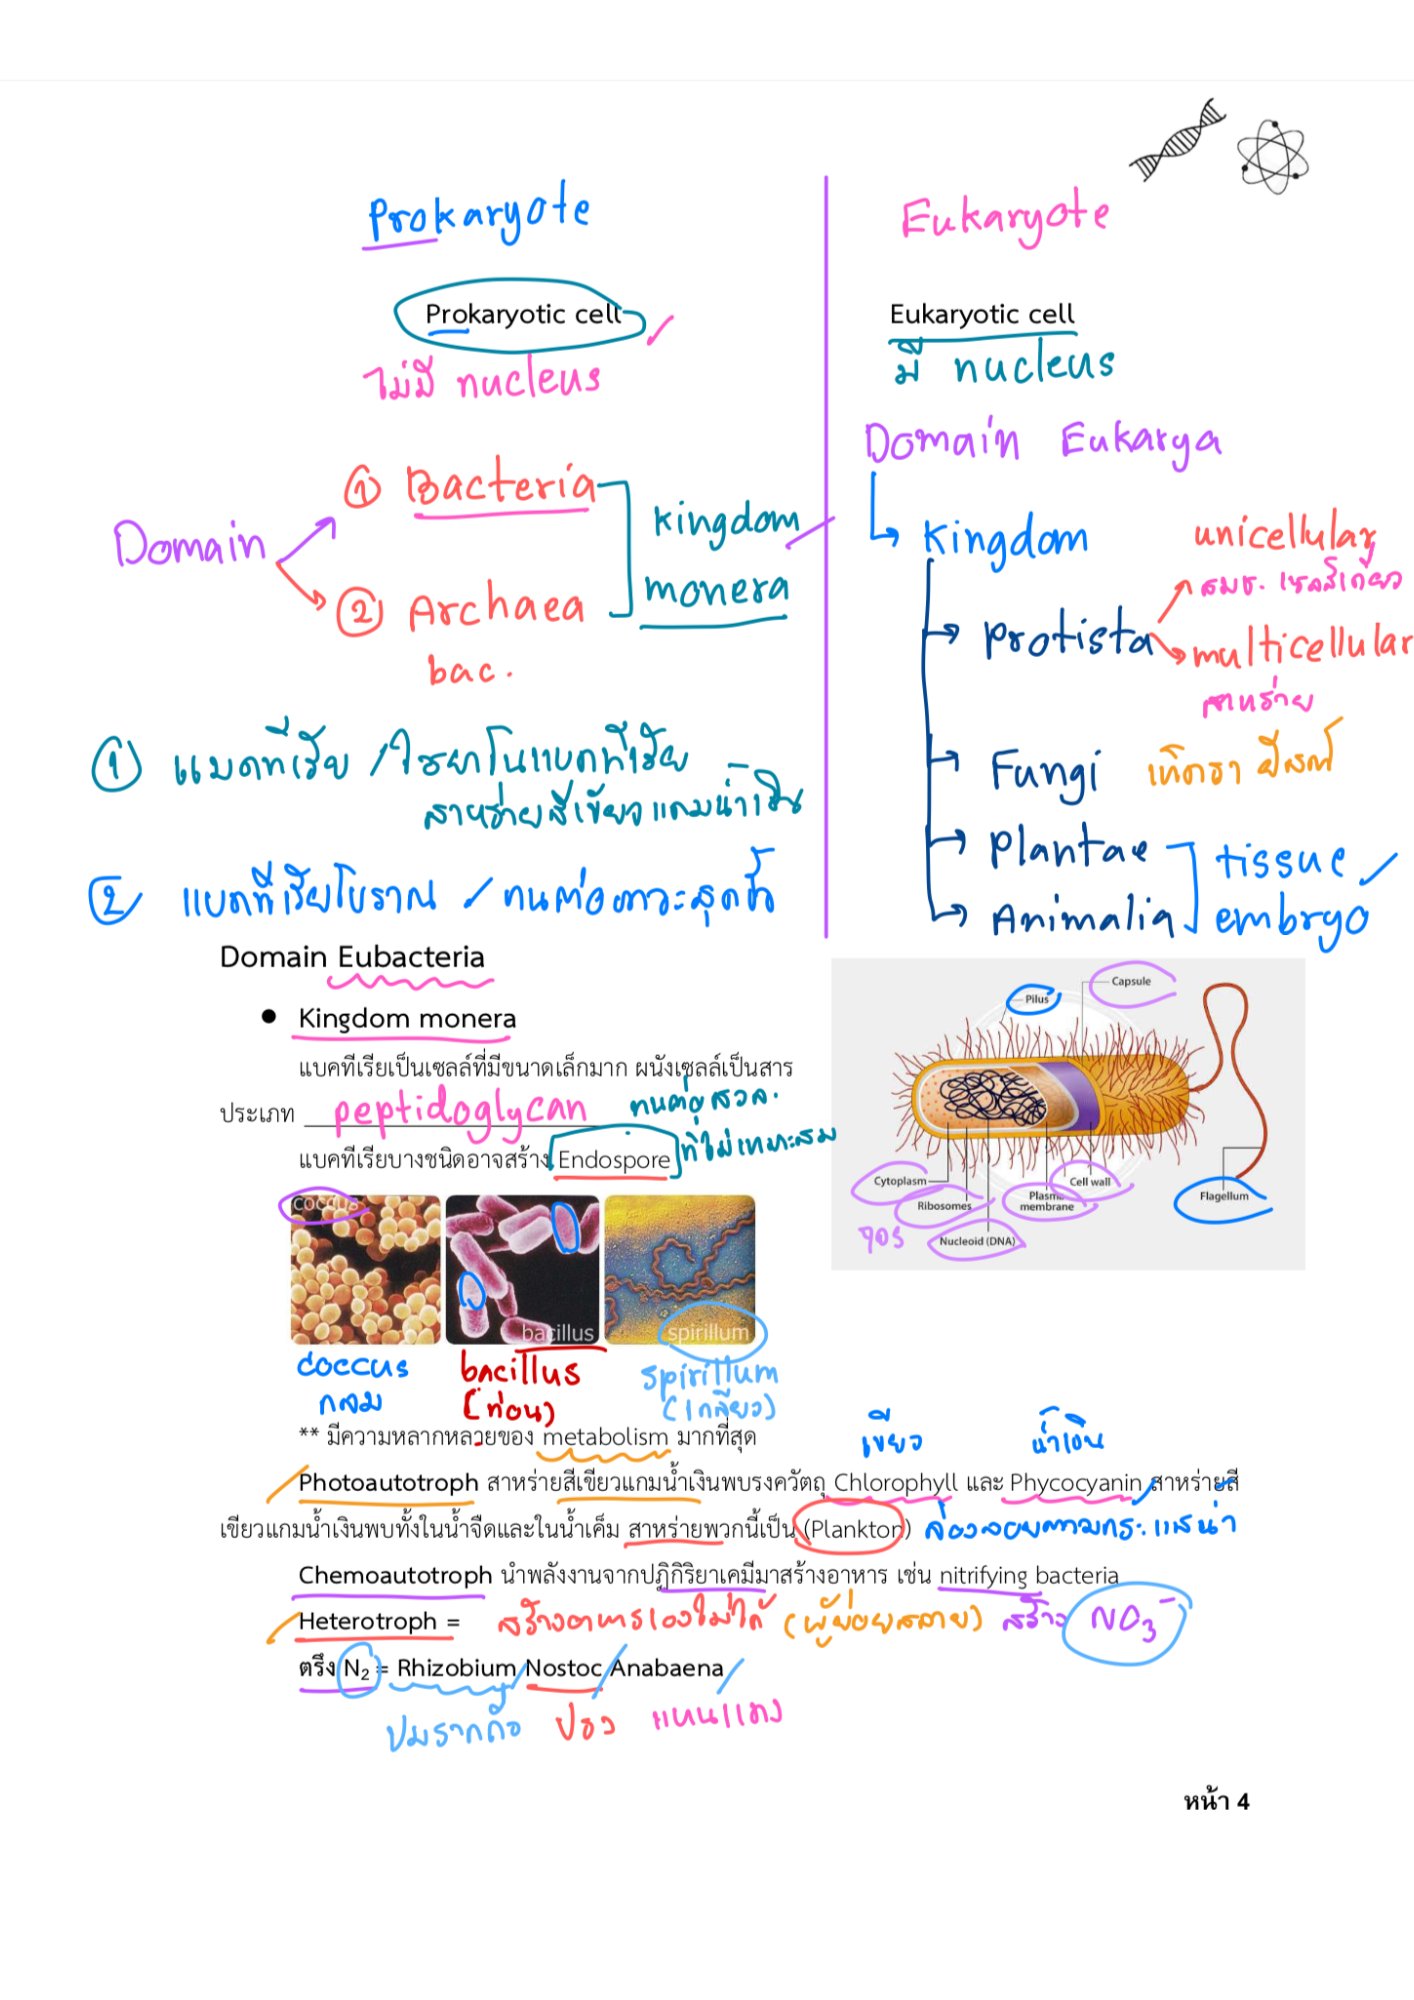 Prokaryote
Prokaryotic cell
ไม่มี nucleus
Domain
① Bacteria
② Archaea
bac.
kingdom
monera
① แบคทีเรีย / ไซยาโนแบคทีเรีย
สาหร่ายสีเขียวแกมน้ำเงิน
② แบคทีเรียโบราณ / ทนต่อภาวะสุดขั้ว
Eukaryote
Eukaryotic cell
มี nucleus
Domain Eukarya
Kingdom
Protista
unicellular
สมช. เซลล์เดียว
multicellular
สาหร่าย
Fungi เห็ดรา ยีสต์
Plantae
Animalia
tissue
embryo
Domain Eubacteria
● Kingdom monera
แบคทีเรียเป็นเซลล์ที่มีขนาดเล็กมาก ผนังเซลล์เป็นสาร
ประเภท peptidoglycan
ทนต่อ สวล.
ที่ไม่เหมาะสม
แบคทีเรียบางชนิดอาจสร้าง Endospore
Capsule
Pilus
Cytoplasm
Ribosomes
70S
Nucleoid (DNA)
Plasma
membrane
Cell wall
Flagellum
coccus
bacillus
spirillum
coccus
กลม
bacillus
(ท่อน)
spirillum
(เกลียว)
** มีความหลากหลายของ metabolism มากที่สุด
เขียว
น้ำเงิน
Photoautotroph สาหร่ายสีเขียวแกมน้ำเงินพบรงควัตถุ Chlorophyll และ Phycocyanin สาหร่ายสี
เขียวแกมน้ำเงินพบทั้งในน้ำจืดและในน้ำเค็ม สาหร่ายพวกนี้เป็น (Plankton) ล่องลอยตามกระแสน้ำ
Chemoautotroph นำพลังงานจากปฏิกิริยาเคมีมาสร้างอาหาร เช่น nitrifying bacteria
Heterotroph = สร้างอาหารเองไม่ได้ (ผู้ย่อยสลาย) สร้าง NO₃⁻
ตรึง N₂ = Rhizobium Nostoc Anabaena
ปมรากถั่ว
แหนแดง
หน้า 4